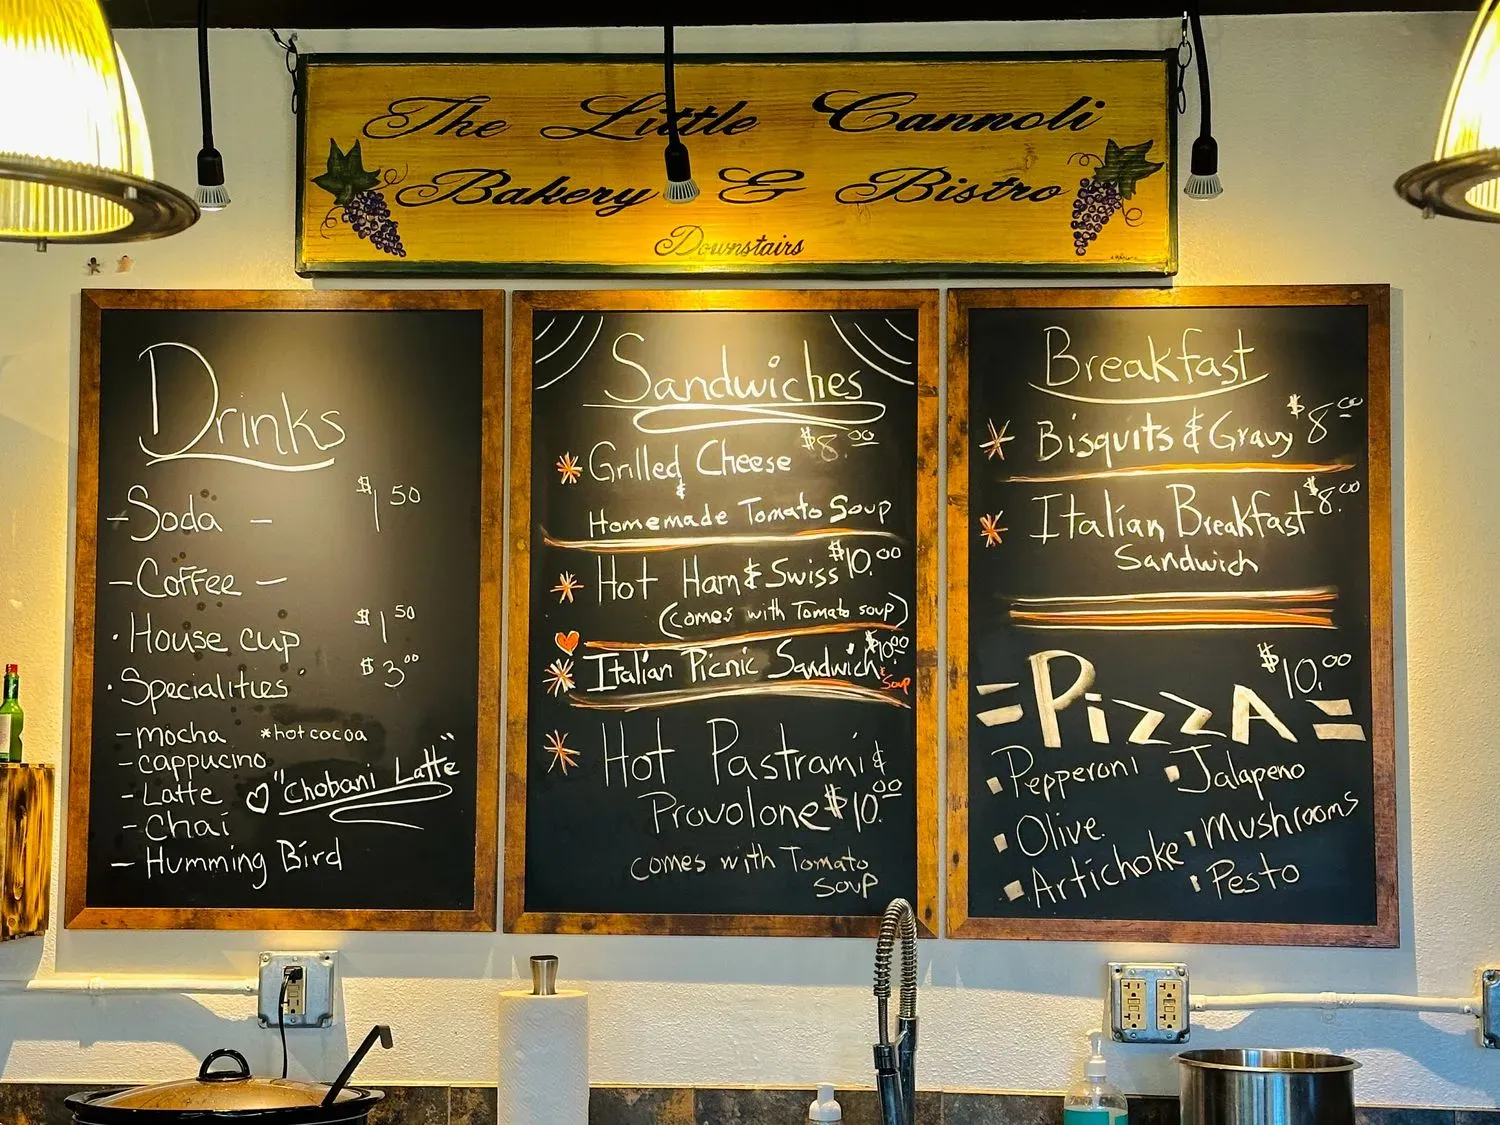 The Little Cannoli
Bakery & Bistro
Downstairs
Drinks
- Soda - $1 50
- Coffee -
· House cup $1 50
· Specialities $3 00
- mocha *hot cocoa
- cappucino
- Latte ♡ "Chobani Latte"
- Chai
- Humming Bird
Sandwiches
* Grilled Cheese $8.00
&
Homemade Tomato Soup
* Hot Ham & Swiss $10.00
(comes with Tomato soup)
* Italian Picnic Sandwich $10.00
& Soup
* Hot Pastrami &
Provolone $10.00
comes with Tomato
Soup
Breakfast
* Bisquits & Gravy $8.00
* Italian Breakfast $8.00
Sandwich
= Pizza = $10.00
▪ Pepperoni
▪ Olive
▪ Artichoke
▪ Jalapeno
▪ Mushrooms
▪ Pesto